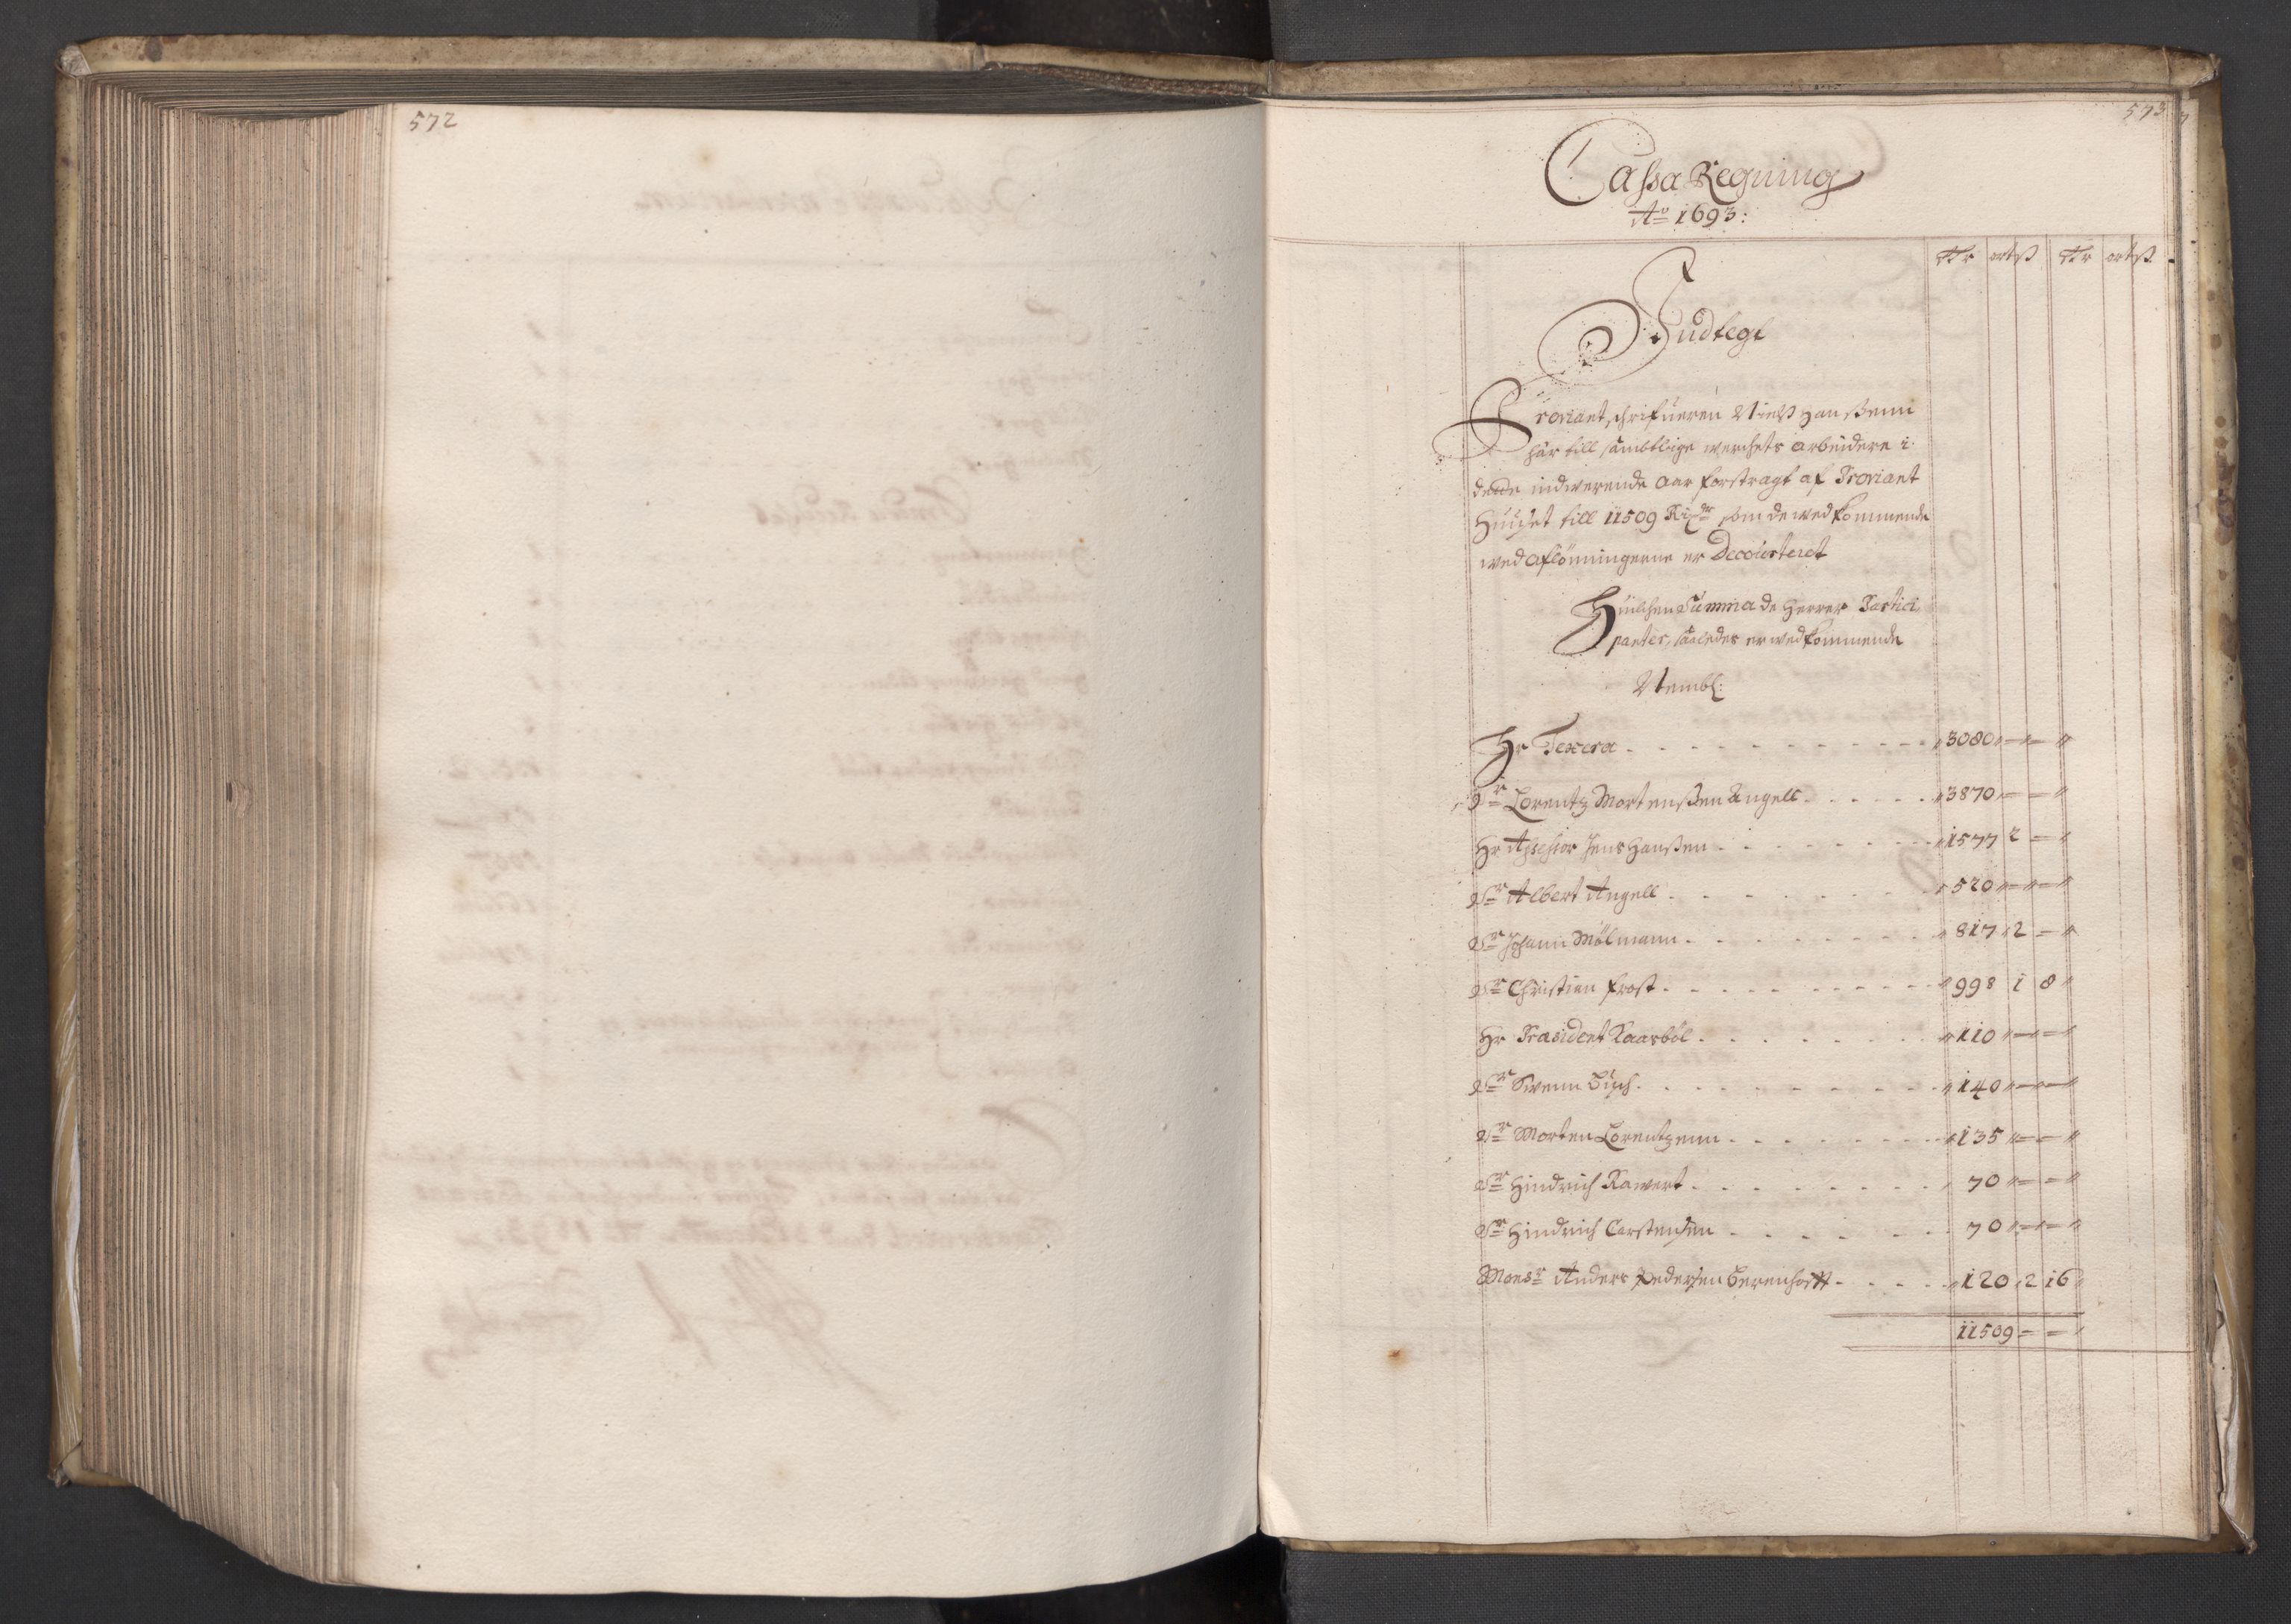 572
573
Cassa Regning
Ao 1693:
Rdr ort ß Rdr ort ß
Indtegt
Proviantschrifueren Niels Hanßenn
har till sambtlige werchets arbeidere i
dette indwerende Aar forstragt af Proviant
Huuset till 11509 Rixdr som de wedkommende
wed aflønningerne er Decourteret
Huilchen Summa de Herrer Partici
panter, saaledes er wedkommende
Nembl:
Hr Texera - - - 3080 " - " - "
Sr Lorentz Mortenßen Angell - - - 3870 " - - "
Hr Assessor Jens Hanßen - - - 1577 2 - "
Sr Albert Angell - - - 520 " - " - "
Sr Johann Mølmann - - - 817 2 - "
Sr Christien Frost - - - 998 1 8 "
Hr Præsident Kaasbøl - - - 110 " - - "
Sr Swenn Busch - - - 140 " - - "
Sr Morten Lorentzenn - - - 135 " - - "
Sr Hindrich Rawert - - - 70 " - - "
Sr Hindrich Carstensen - - - 70 " - - "
Monsr Anders Pedersen Berenhoff - - - 120 2 16
11509 - - "